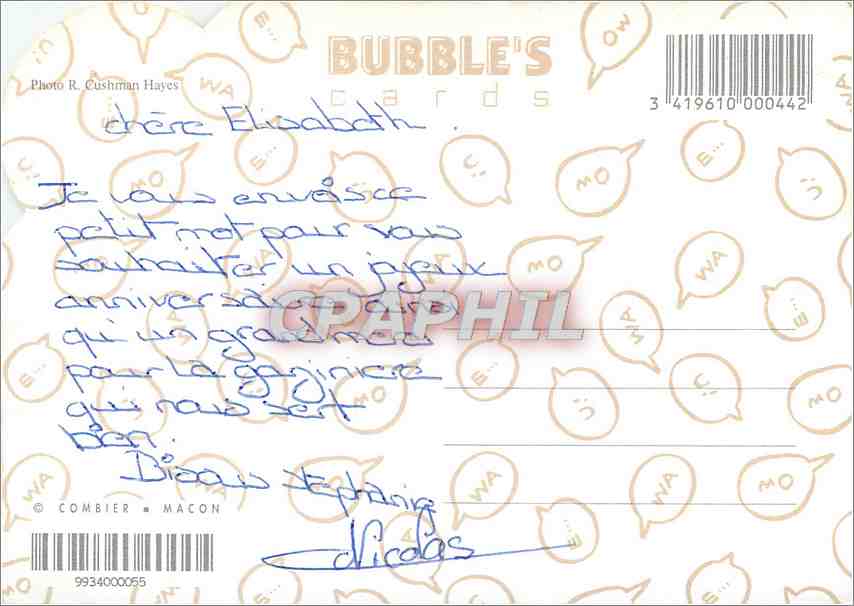 BUBBLE'S
cards
Photo R. Cushman Hayes
3 419610 000442
chère Elisabeth.
Je vous envoisce
petit mot pour vous
souhaiter un joyeux
anniversaire
qui un grand
pour la gaziniere
qui nous sert
bien.
Bisous stephanie
Nicolas
CPAPHIL
© COMBIER ■ MACON
9934000055
WA
MO
OW
E...